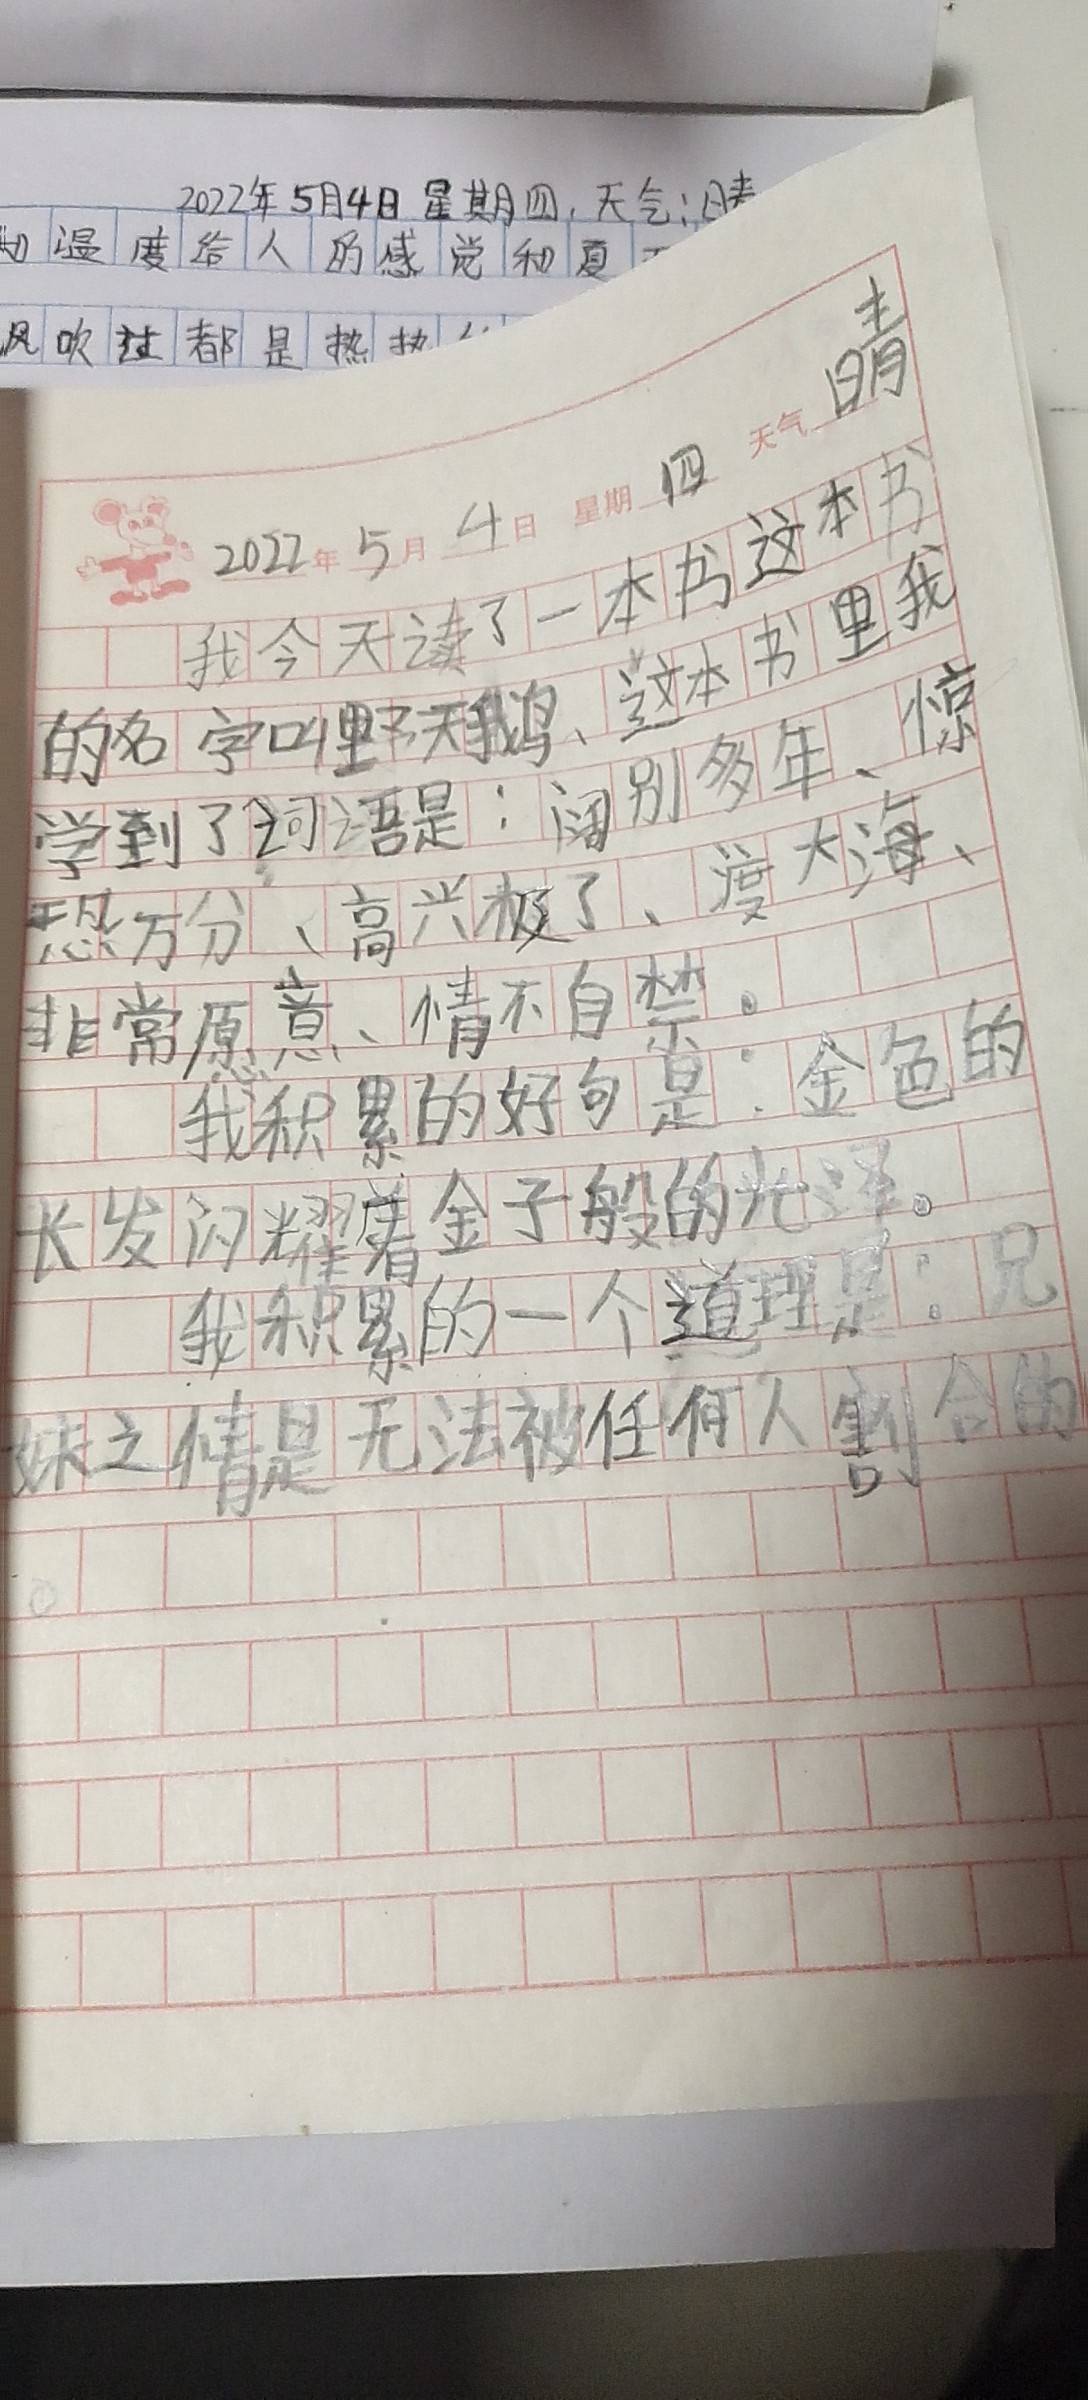 2022年5月4日 星期四. 天气:晴
温度给人的感觉和夏
风吹过都是热热
2022年5月4日 星期四 天气晴
我今天读了一本书这本书
的名字叫野天鹅、这本书里我
学到了词语是：阔别多年、惊
恐万分、高兴极了、渡大海、
非常愿意、情不自禁。
我积累的好句是：金色的
长发闪耀着金子般的光泽。
我积累的一个道理是：兄
妹之情是无法被任何人割合的
。